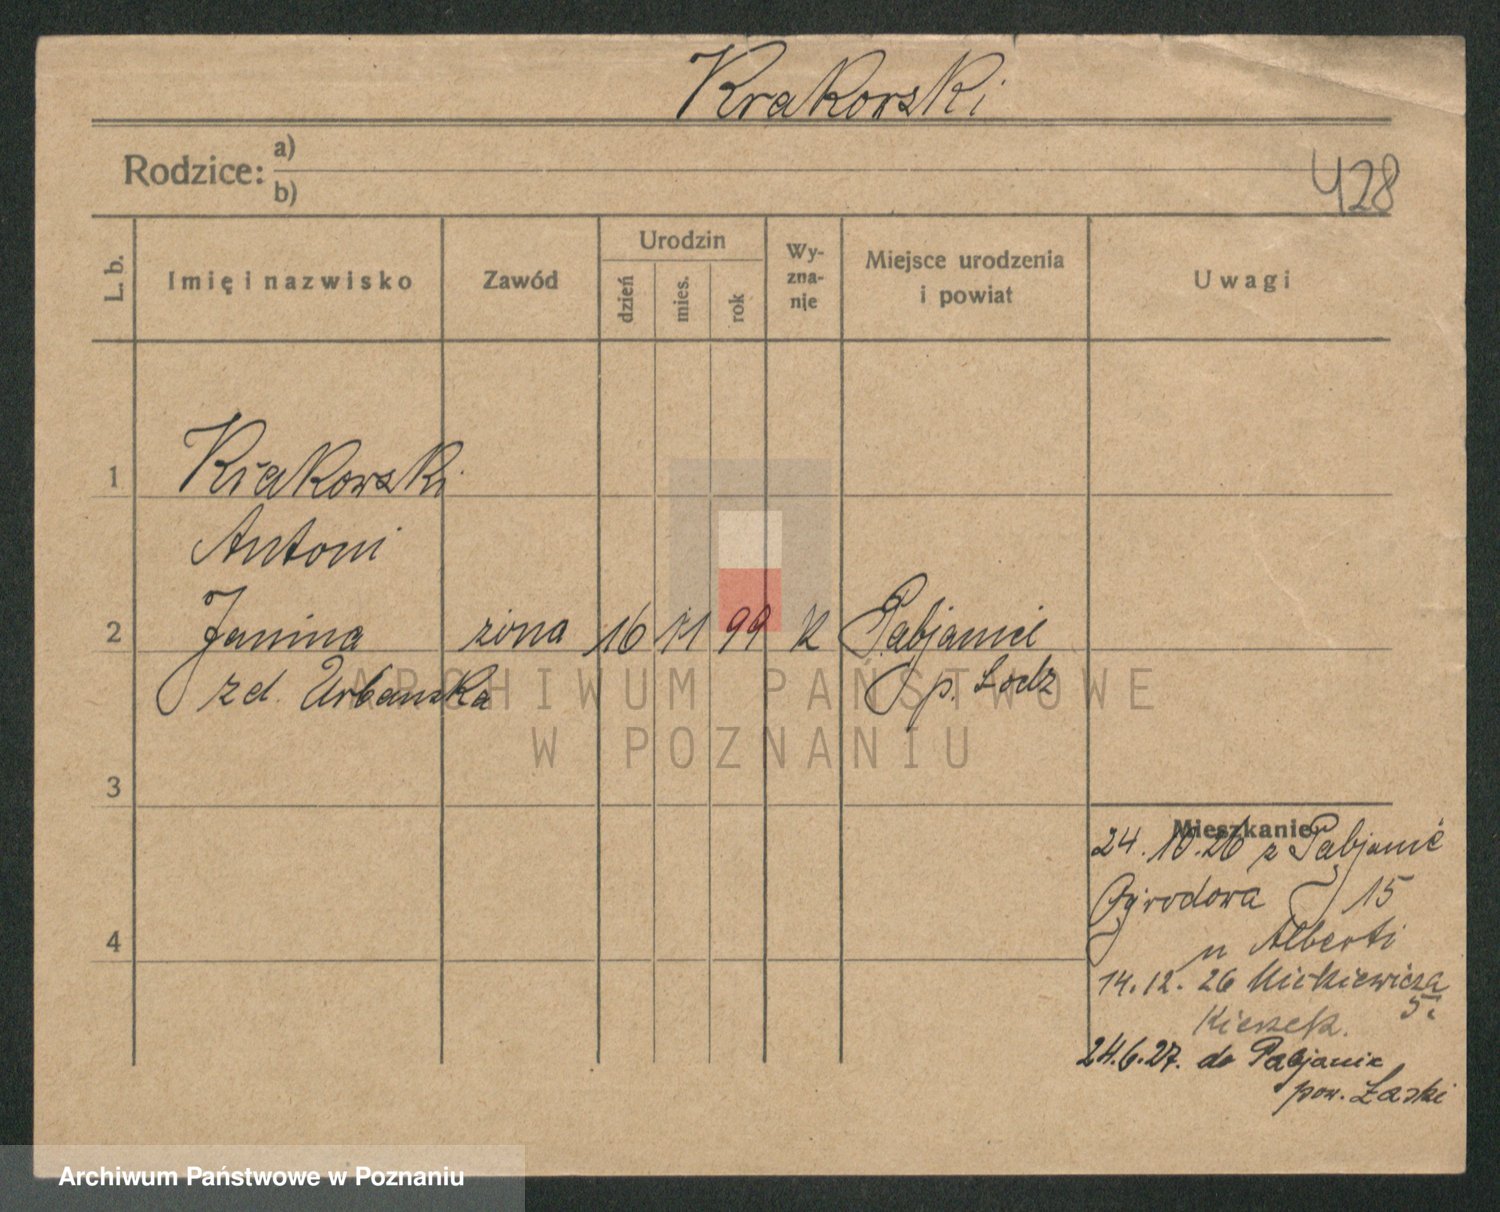 Krakowski
Rodzice: a)
b)
428
L. b.
Imię i nazwisko
Zawód
Urodzin
dzień
mies.
rok
Wy-
zna-
nie
Miejsce urodzenia
i powiat
Uwagi
1 Krakowski
Antoni
2 Janina żona 16 11 99 K Pabjanice
zd. Urbanska p. Łodz
ARCHIWUM PAŃSTWOWE
W POZNANIU
3
Mieszkanie
24.10.26 z Pabjanic
Ogrodowa 15
4
u Alberti
14.12.26 Mickiewicza
5.
24.6.27. do Pabjanic
pow. Łaski
Archiwum Państwowe w Poznaniu